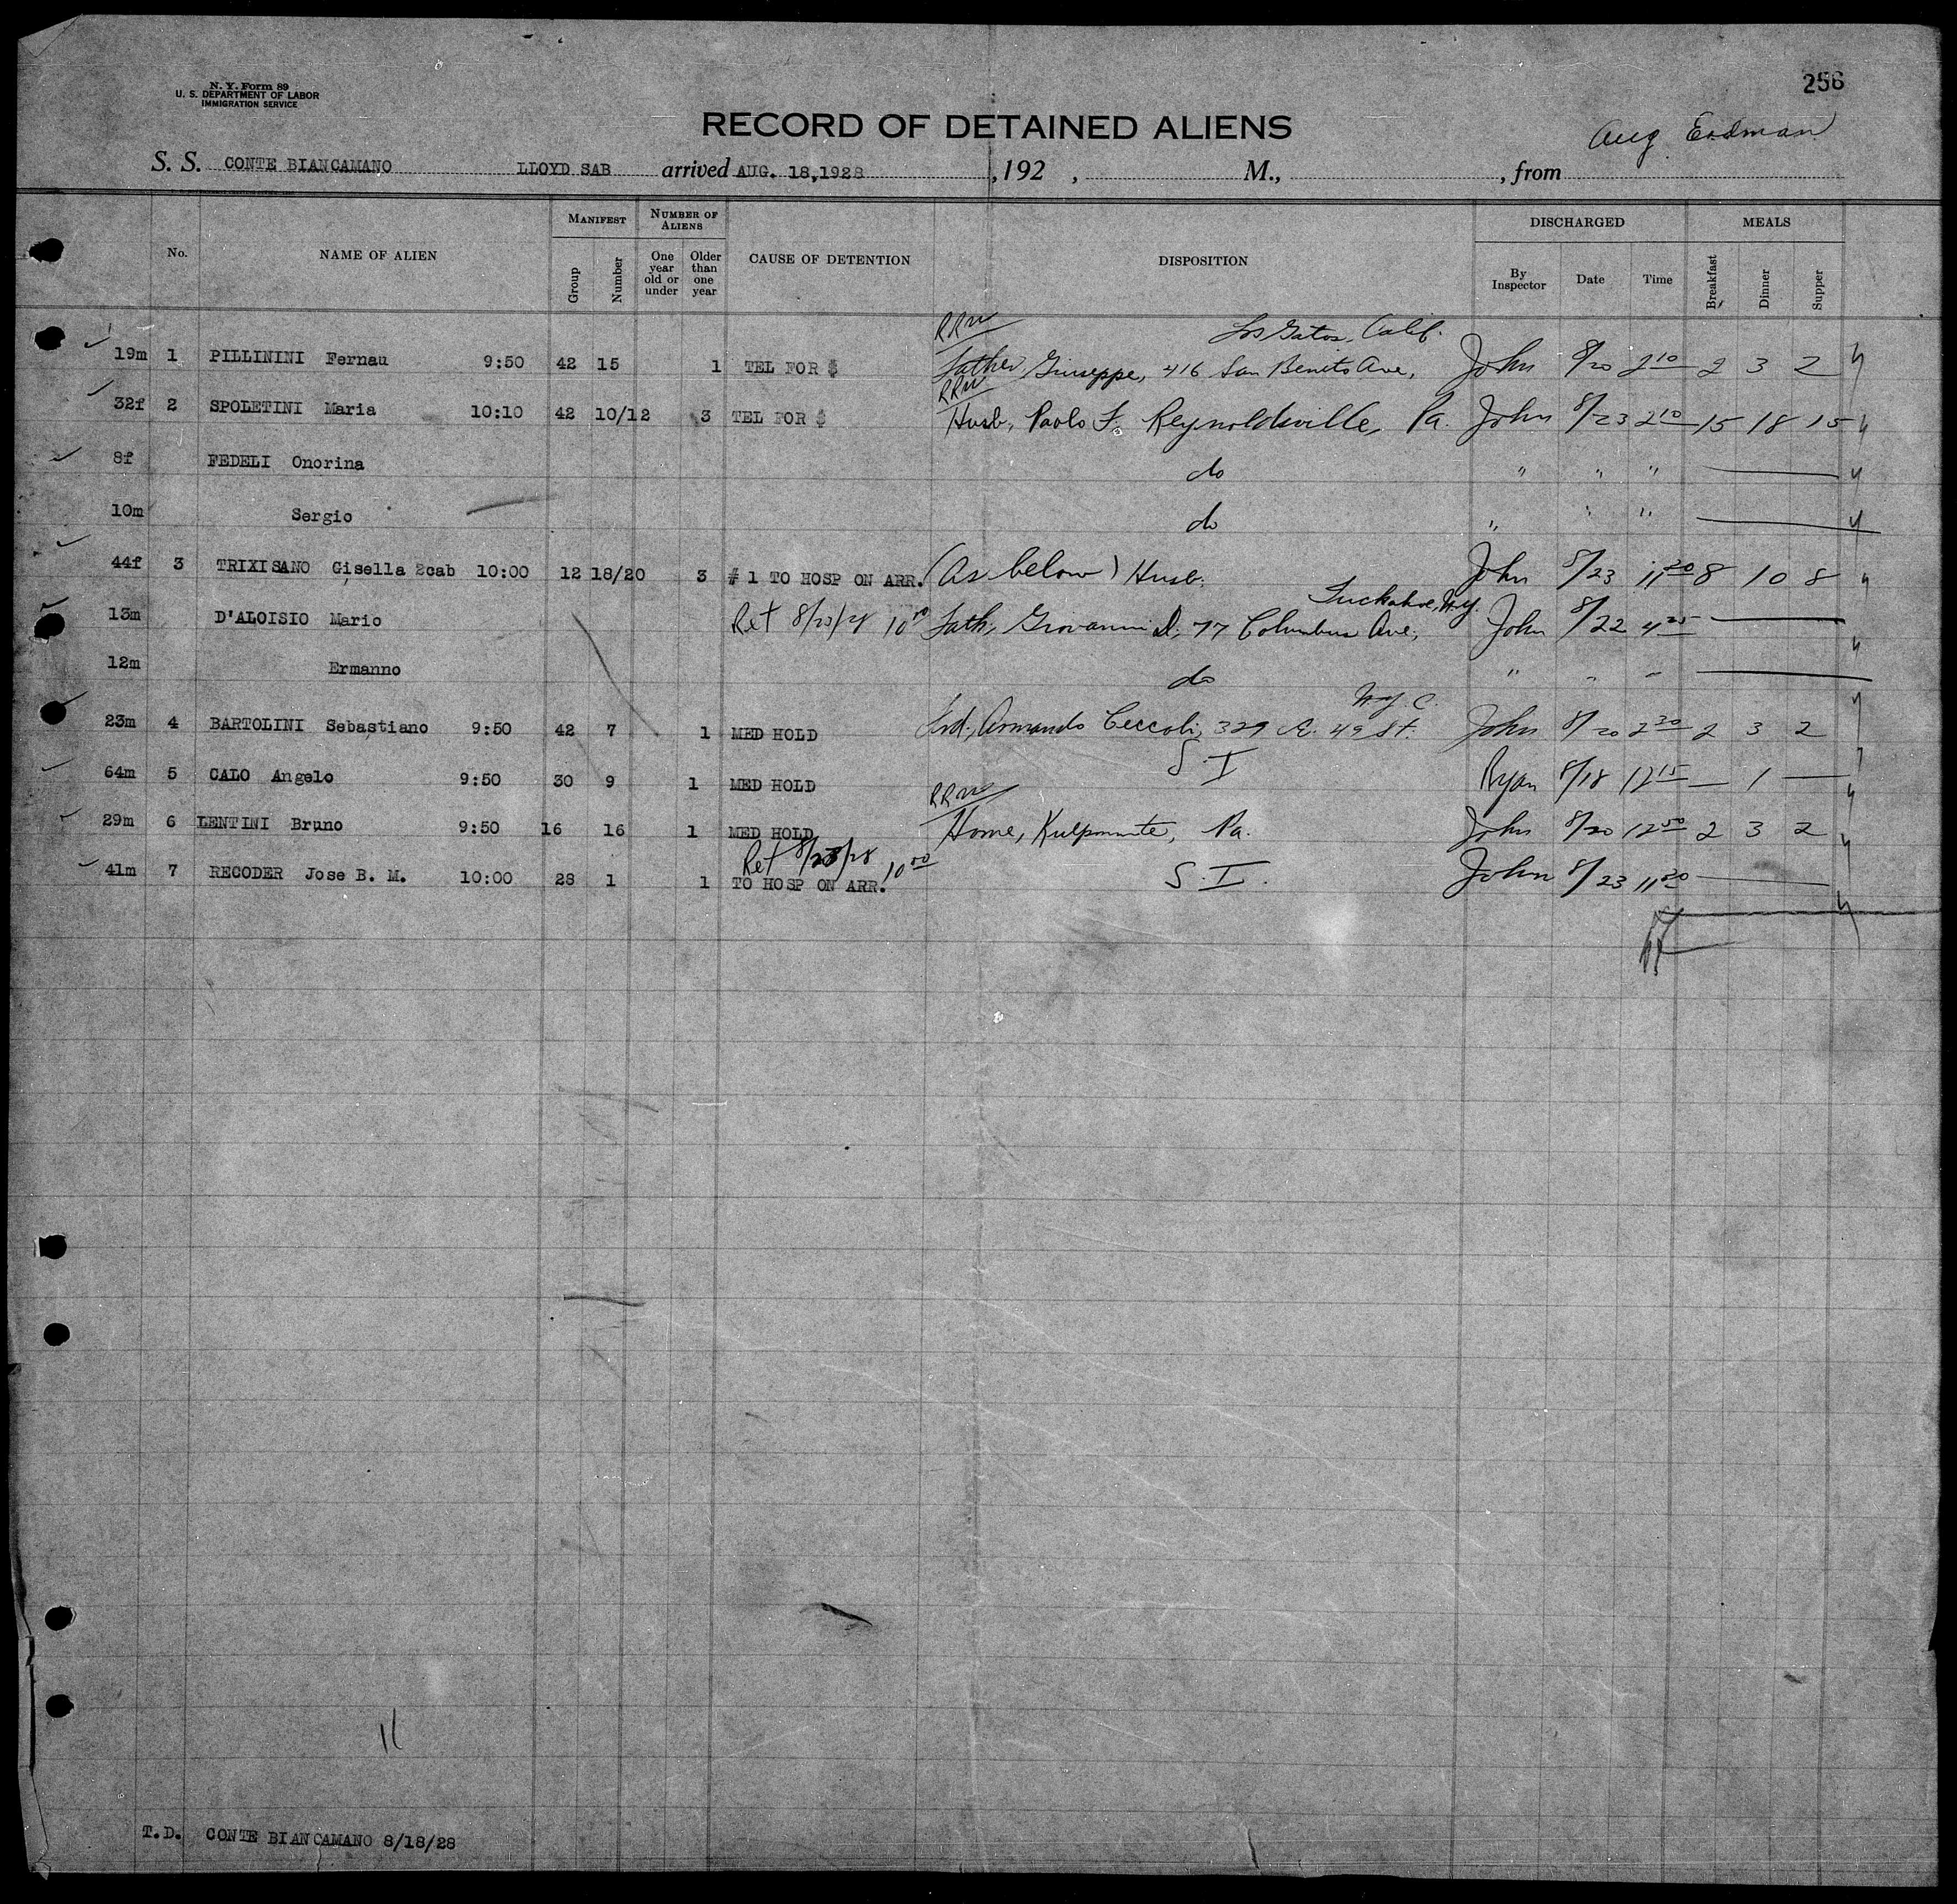 N. Y. Form 89
U. S. DEPARTMENT OF LABOR
IMMIGRATION SERVICE
256
RECORD OF DETAINED ALIENS
Aug Erdman
S. S. CONTE BIANCAMANO LLOYD SAB arrived AUG. 18,1928 , 192 , M., , from
No. NAME OF ALIEN MANIFEST Group Number NUMBER OF ALIENS One year old or under Older than one year CAUSE OF DETENTION DISPOSITION DISCHARGED By Inspector Date Time MEALS Breakfast Dinner Supper
RRW Los Gatos, Calif.
19m 1 PILLININI Fernau 9:50 42 15 1 TEL FOR $ Father, Giuseppe, 416 San Benito Ave, John 8/20 2 10 2 3 2
RRW
32f 2 SPOLETINI Maria 10:10 42 10/12 3 TEL FOR $ Husb, Paolo F. Reynoldsville, Pa. John 8/23 2 10 15 18 15
8f FEDELI Onorina do " " "
10m Sergio do " " "
44f 3 TRIXISANO Gisella 2cab 10:00 12 18/20 3 # 1 TO HOSP ON ARR. (As below) Husb. John 8/23 11 20 8 10 8
Tuckahoe, N.Y.
13m D'ALOISIO Mario Ret 8/23/28 10 00 Fath, Giovanni D, 77 Columbus Ave, John 8/22 4 25
12m Ermanno do " " "
N.Y.C.
23m 4 BARTOLINI Sebastiano 9:50 42 7 1 MED HOLD Frd, Armando Ceccoli, 329 E. 49 St. John 8/20 2 20 2 3 2
64m 5 CALO Angelo 9:50 30 9 1 MED HOLD S.I Ryan 8/18 12 15 — 1 —
RRW
29m 6 LENTINI Bruno 9:50 16 16 1 MED HOLD Home, Kulpmnte, Pa. John 8/20 12 50 2 3 2
Ret 8/23/28 10 00
41m 7 RECODER Jose B. M. 10:00 28 1 1 TO HOSP ON ARR. S.I. John 8/23 11 20
11
T.D. CONTE BIANCAMANO 8/18/28